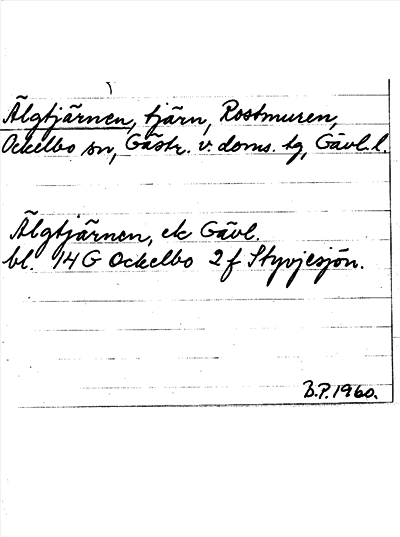 Älgtjärnen, tjärn, Rostmuren,
Ockelbo sn, Gästr. v. doms. tg, Gävl. l.
Älgtjärnen, ek Gävl.
bl. 14G Ockelbo 2f Styvjesjön.
B.P. 1960.